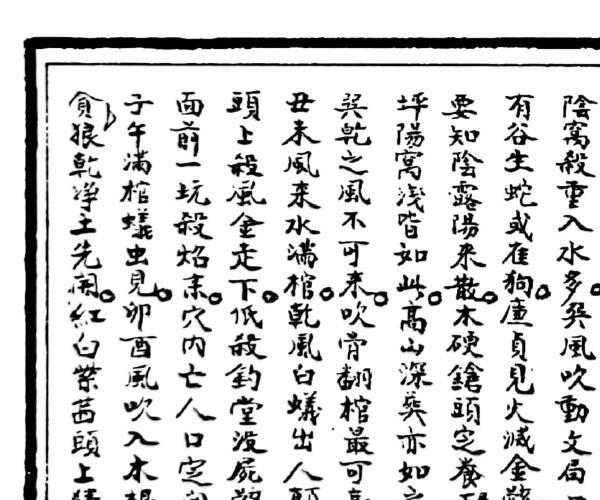 陰窩殺重入水多。巽風吹動文局
有谷生蛇或在狗。廉貞見火滅金
要知陰露陽來散。木硬鎗頭定養
坪陽窩淺皆如此。高山深葬亦如之
巽乾之風不可來。吹骨翻棺最可
丑未風來水滿棺。乾風白蟻出人
頭上殺風金走下。低殺釣堂沒屍
面前一坑殺焰
穴內亡人口定
子午滿棺蟻虫見。卯酉風吹入木
貪狼乾淨土先開。紅白紫茜頭上